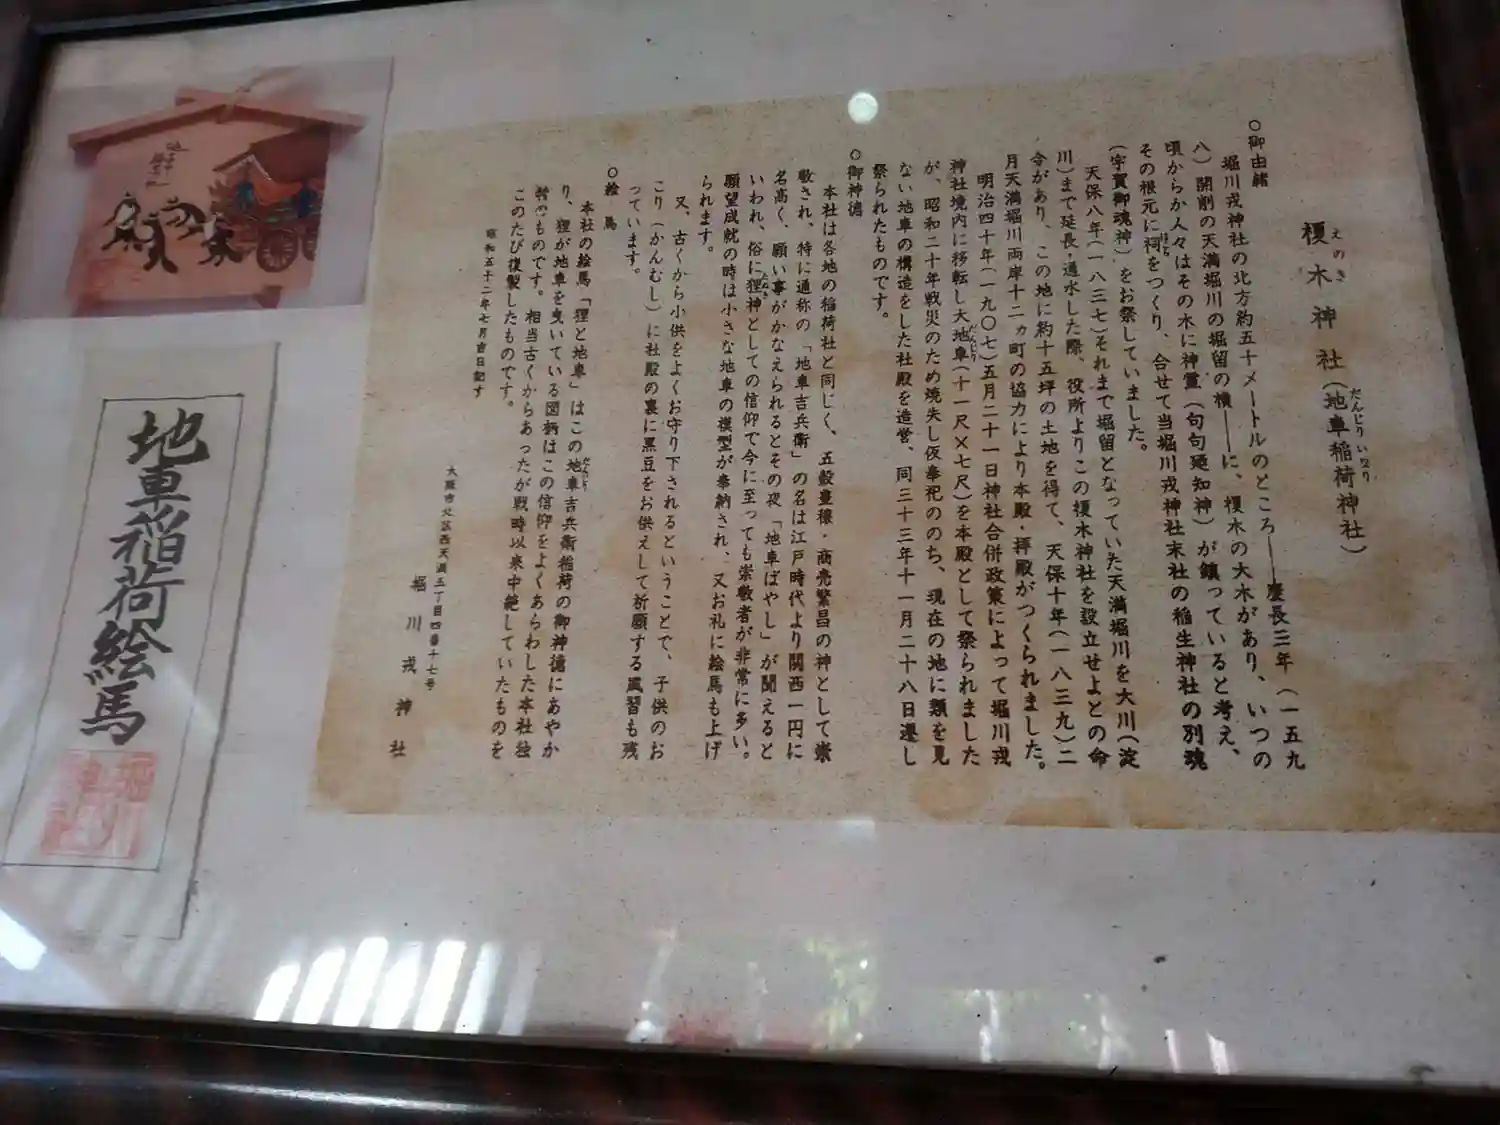 榎木神社(地車稲荷神社)
えのき
だんじりいなり
○御由緒
堀川戎神社の北方約五十メートルのところ――慶長三年(一五九
八)開削の天満堀川の堀留の横――に、榎木の大木があり、いつの
頃からか人々はその木に神霊(句句廼知神)が鎮っていると考え、
その根元に祠をつくり、合せて当堀川戎神社末社の稲生神社の別魂
ほこら
(宇賀御魂神)をお祭していました。
天保八年(一八三七)それまで堀留となっていた天満堀川を大川(淀
川)まで延長・通水した際、役所よりこの榎木神社を設立せよとの命
令があり、この地に約十五坪の土地を得て、天保十年(一八三九)二
月天満堀川両岸十二ヵ町の協力により本殿・拝殿がつくられました。
明治四十年(一九〇七)五月二十一日神社合併政策によって堀川戎
神社境内に移転し大地車(十一尺×七尺)を本殿として祭られました
だんじり
が、昭和二十年戦災のため焼失し仮奉祀ののち、現在の地に類を見
ない地車の構造をした社殿を造営、同三十三年十一月二十八日遷し
祭られたものです。
○御神徳
本社は各地の稲荷社と同じく、五穀豊穣・商売繁昌の神として崇
敬され、特に通称の「地車吉兵衛」の名は江戸時代より関西一円に
名高く、願い事がかなえられるとその夜「地車ばやし」が聞えると
いわれ、俗に狸神としての信仰で今に至っても崇敬者が非常に多い。
たぬき
願望成就の時は小さな地車の模型が奉納され、又お礼に絵馬も上げ
られます。
又、古くから小供をよくお守り下されるということで、子供のお
こり(かんむし)に社殿の裏に黒豆をお供えして祈願する風習も残
っています。
○絵馬
本社の絵馬「狸と地車」はこの地車吉兵衛稲荷の御神徳にあやか
だんじり
り、狸が地車を曳いている図柄はこの信仰をよくあらわした本社独
特のものです。相当古くからあったが戦時以来中絶していたものを
このたび復製したものです。
昭和五十二年七月吉日記す
大阪市北区西天満五丁目四番十七号
堀川戎神社
地車稲荷絵馬